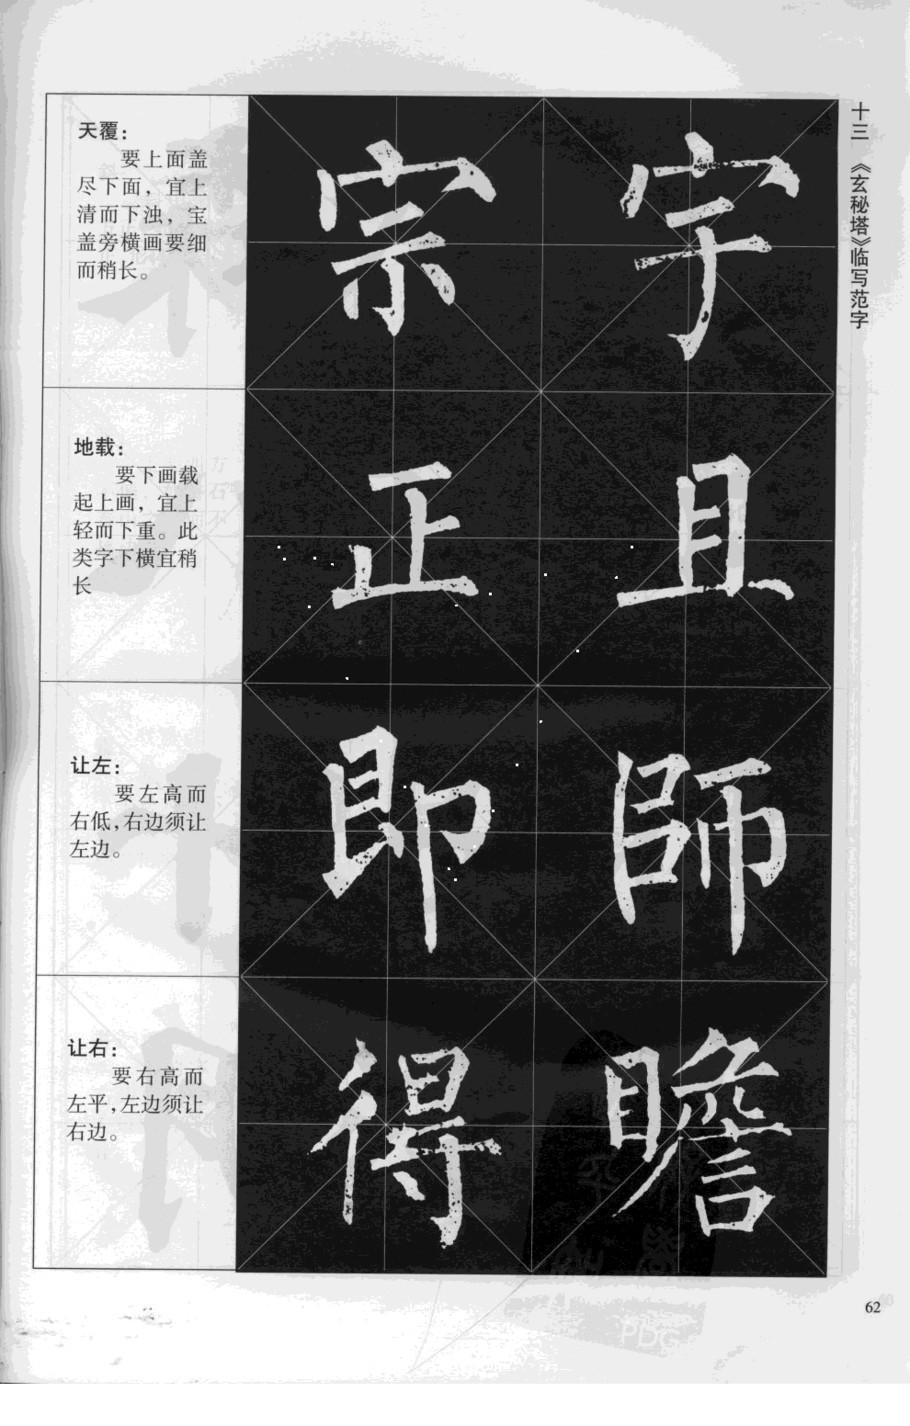 十三 《玄秘塔》临写范字
天覆：
要上面盖
尽下面，宜上
清而下浊，宝
盖旁横画要细
而稍长。
宗 字
地载：
要下画载
起上画，宜上
轻而下重。此
类字下横宜稍
长
正 且
让左：
要左高而
右低，右边须让
左边。
即 師
让右：
要右高而
左平，左边须让
右边。
得 瞻
62
PDG